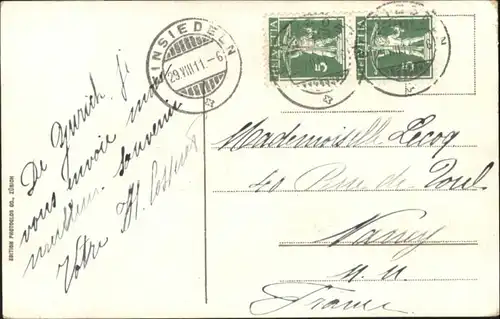 EINSIEDELN
29.VIII.11.-6
HELVETIA
5
HELVETIA
5
De Zurich, je
vous envoie mon
meilleur souvenir
Votre H.
Mademoiselle Lecoq
40 Rue de Toul
Nancy
M. M.
France
EDITION PHOTOGLOB CO., ZÜRICH